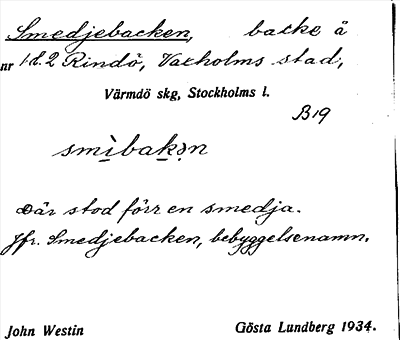 Smedjebacken, backe å
nr 1 & 2 Rindö, Vaxholms stad,
Värmdö skg, Stockholms l.
B19
smìbakən
Där stod förr en smedja.
Jfr. Smedjebacken, bebyggelsenamn.
John Westin Gösta Lundberg 1934.